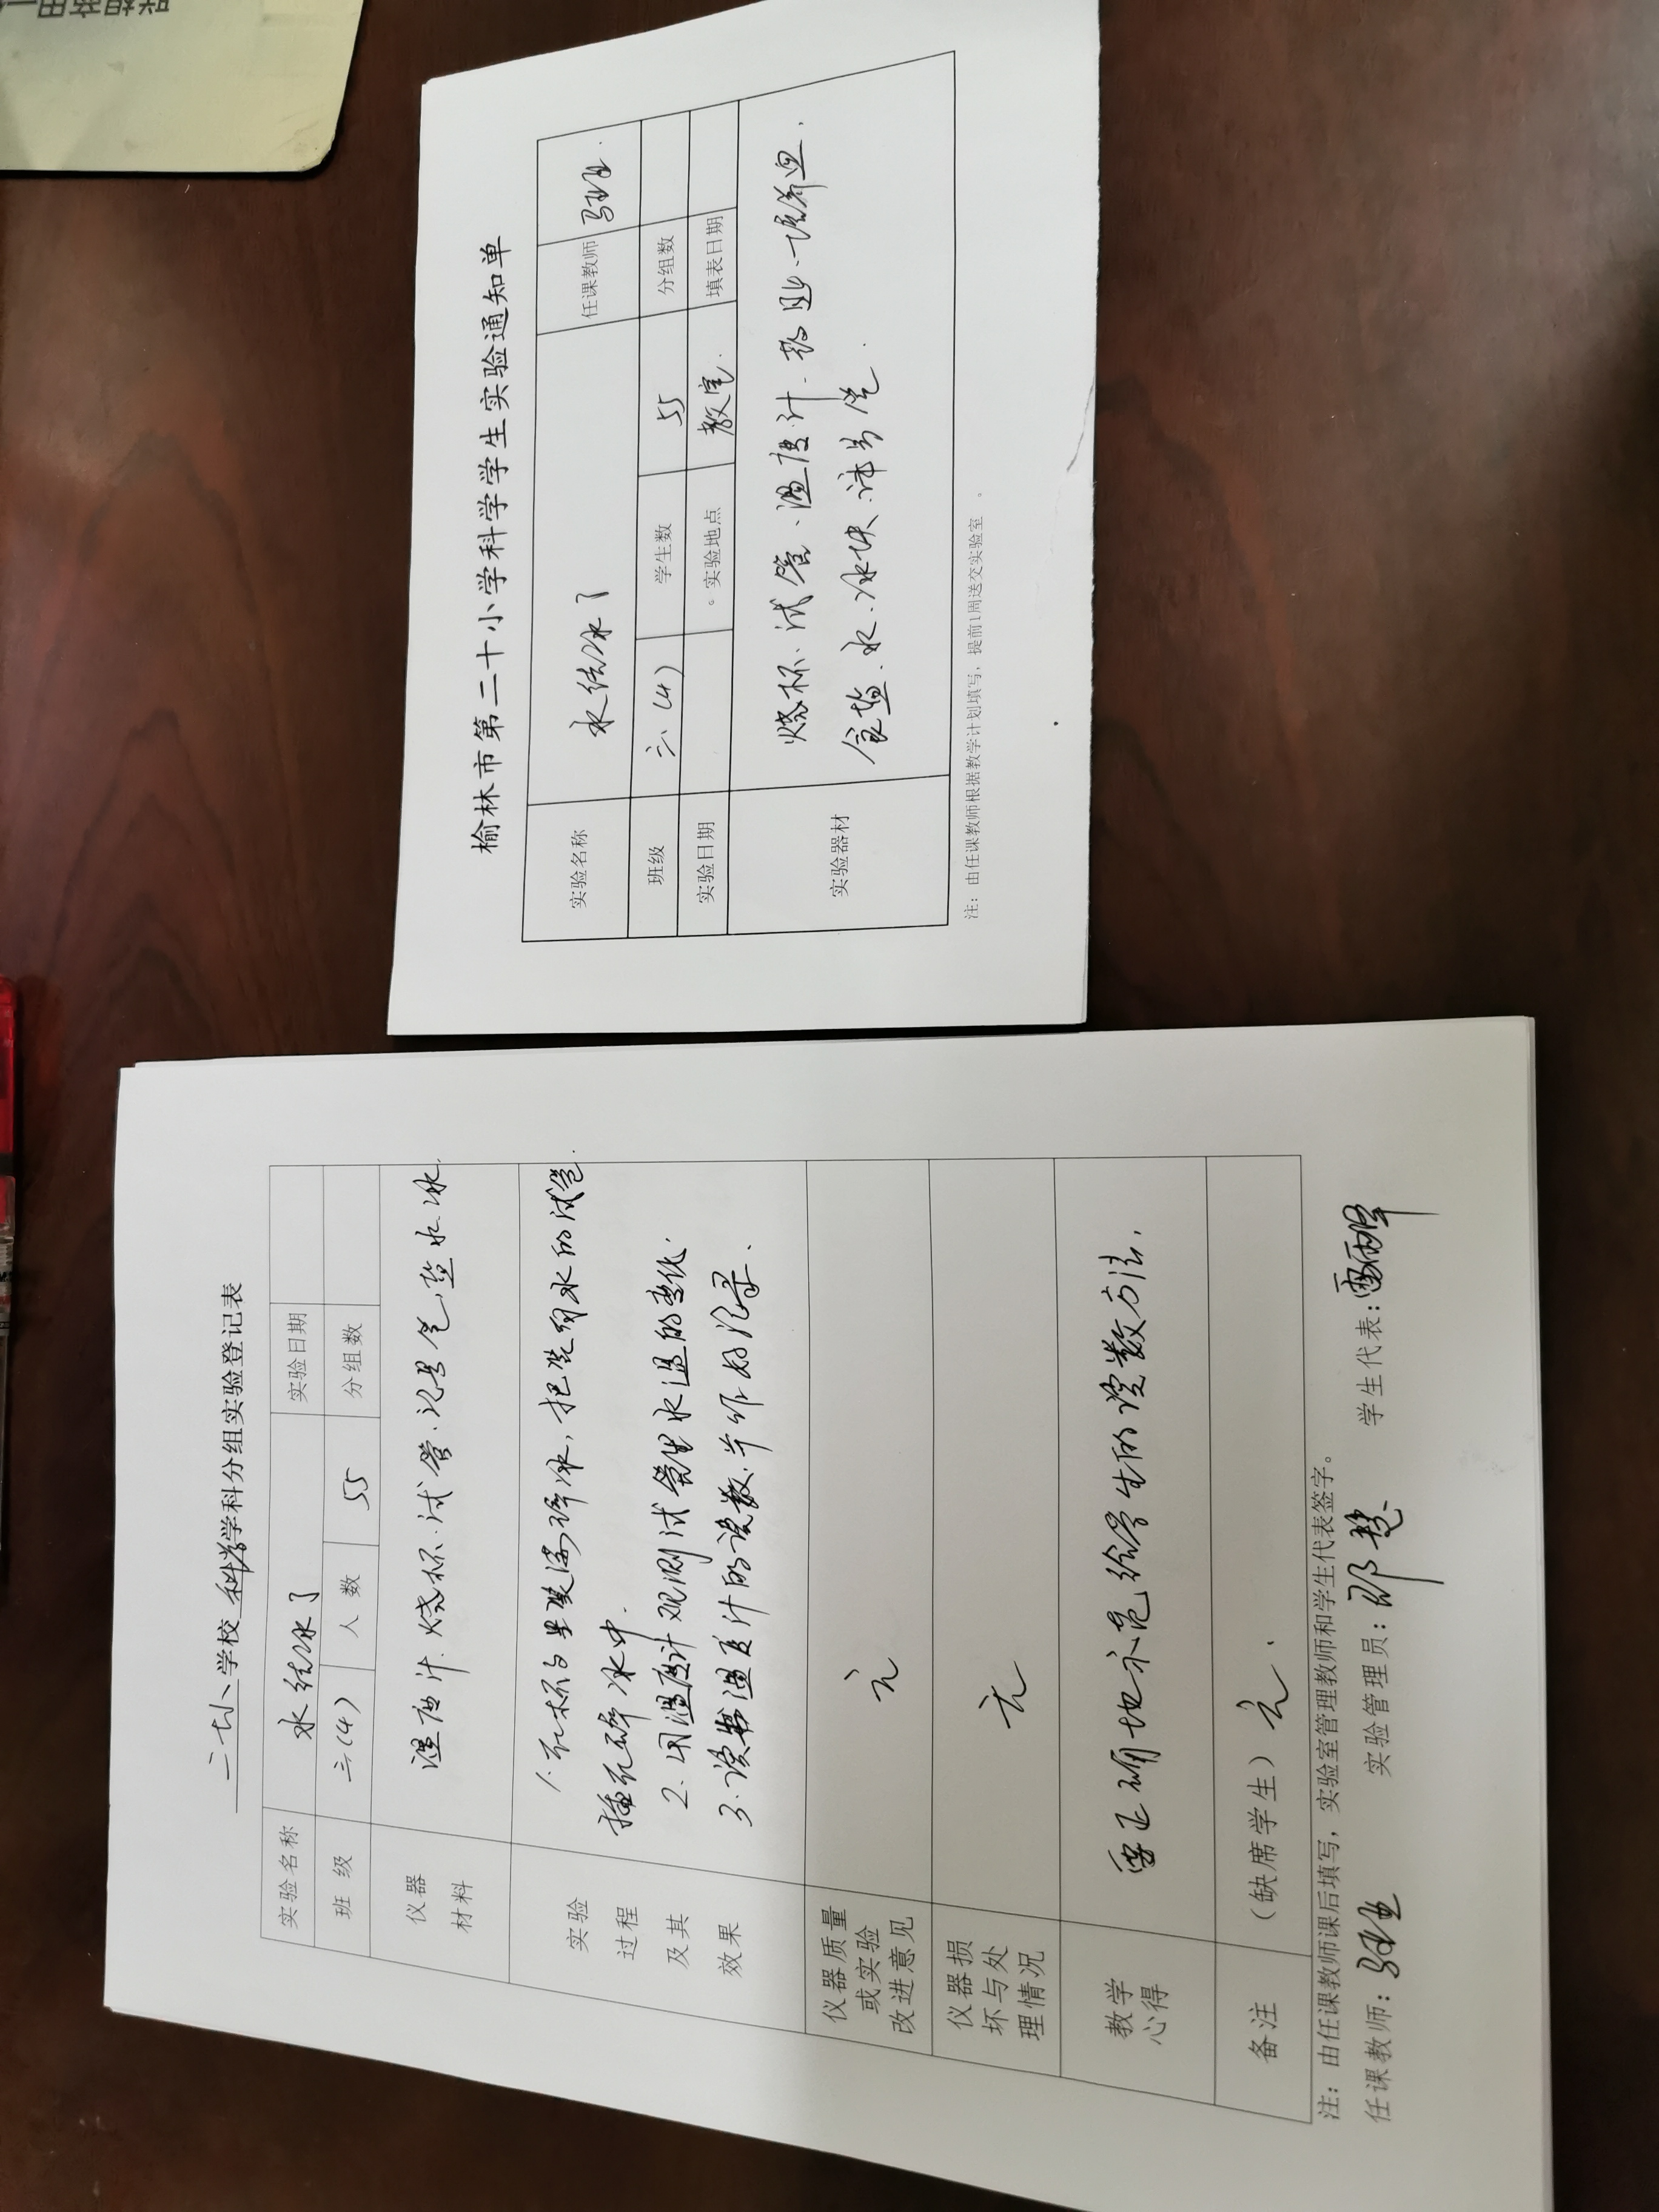 二十小学校科学学科分组实验登记表
实验名称 水结冰了 实验日期
班级 三(4) 人数 55 分组数
仪器材料 温度计.烧杯.试管.记录卷.盐水冰.
实验过程及其效果
1.在杯子里装满碎冰,把装有水的试管
插在碎冰中.
2.用温度计观测试管里水温的变化.
3.读出温度计的读数.并作好记录.
仪器质量或实验改进意见 无
仪器损坏与处理情况 无
教学心得 要正确地示范给学生的读数方法.
备注 (缺席学生)无.
注:由任课教师课后填写,实验室管理教师和学生代表签字。
任课教师: 实验管理员:邓慧 学生代表:
榆林市第二十小学科学学生实验通知单
实验名称 水结冰了 任课教师
班级 三(4) 学生数 55 分组数
实验日期 实验地点 教室. 填表日期
实验器材 烧杯.试管.温度计.
食盐.水.冰块.
注:由任课教师根据教学计划填写,提前1周送交实验室。